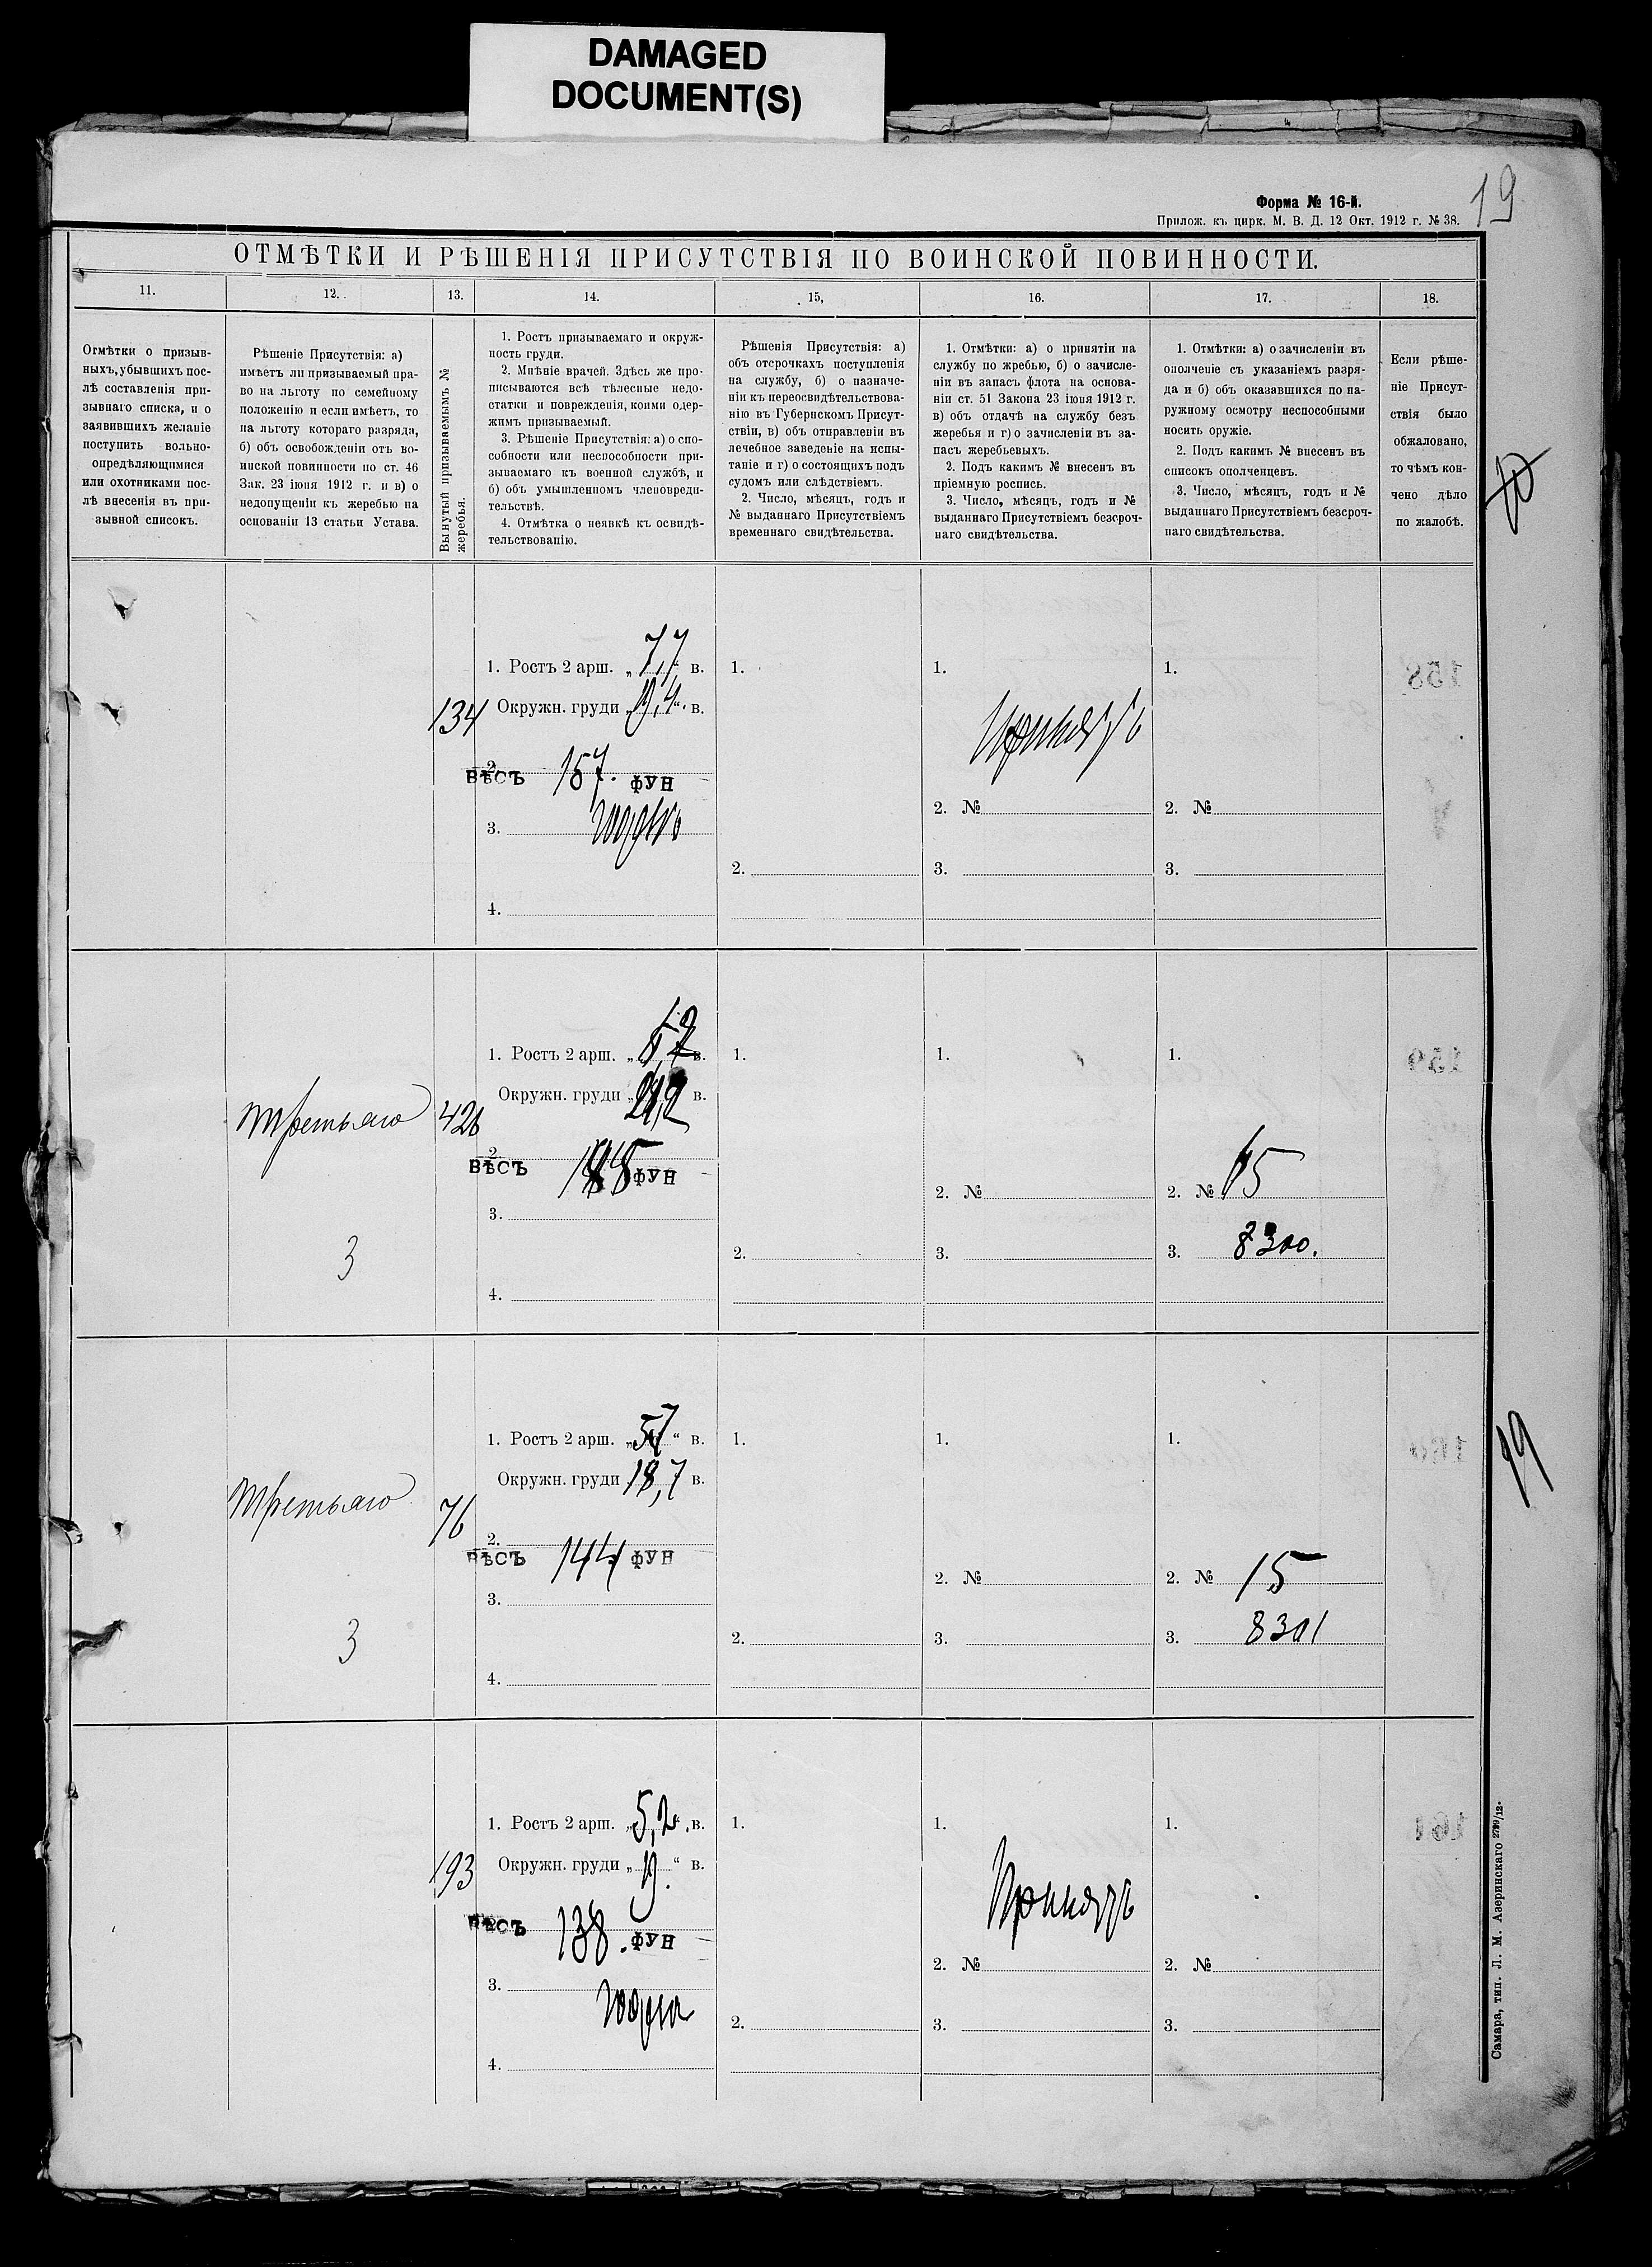 DAMAGED
DOCUMENT(S)
19
Форма № 16-й.
Прилож. къ цирк. М. В. Д. 12 Окт. 1912 г. № 38.
ОТМѢТКИ И РѢШЕНІЯ ПРИСУТСТВІЯ ПО ВОИНСКОЙ ПОВИННОСТИ.
11.
12.
13.
14.
15,
16.
17.
18.
Отмѣтки о призыв-
ныхъ, убывшихъ пос-
лѣ составленія при-
зывнаго списка, и о
заявившихъ желаніе
поступить вольно-
опредѣляющимися
или охотниками пос-
лѣ внесенія въ при-
зывной списокъ.
Рѣшеніе Присутствія: а)
имѣетъ ли призываемый пра-
во на льготу по семейному
положенію и если имѣетъ, то
на льготу котораго разряда,
б) объ освобожденіи отъ во-
инской повинности по ст. 46
Зак. 23 іюня 1912 г. и в) о
недопущеніи къ жеребью на
основаніи 13 статьи Устава.
Вынутый призываемымъ №
жеребья.
1. Ростъ призываемаго и окруж-
ность груди.
2. Мнѣніе врачей. Здѣсь же про-
писываются всѣ тѣлесные недо-
статки и поврежденія, коими одер-
жимъ призываемый.
3. Рѣшеніе Присутствія: а) о спо-
собности или неспособности при-
зываемаго къ военной службѣ, и
б) объ умышленномъ членовреди-
тельствѣ.
4. Отмѣтка о неявкѣ къ освидѣ-
тельствованію.
Рѣшенія Присутствія: а)
объ отсрочкахъ поступленія
на службу, б) о назначе-
ніи къ переосвидѣтельствова-
нію въ Губернскомъ Присут-
ствіи, в) объ отправленіи въ
лечебное заведеніе на испы-
таніе и г) о состоящихъ подъ
судомъ или слѣдствіемъ.
2. Число, мѣсяцъ, годъ и
№ выданнаго Присутствіемъ
временнаго свидѣтельства.
1. Отмѣтки: а) о принятіи на
службу по жребью, б) о зачисле-
ніи въ запасъ флота на основа-
ніи ст. 51 Закона 23 іюня 1912 г.
в) объ отдачѣ на службу безъ
жеребья и г) о зачисленіи въ за-
пасъ жеребьевыхъ.
2. Подъ какимъ № внесенъ въ
пріемную роспись.
3. Число, мѣсяцъ, годъ и №
выданнаго Присутствіемъ безсроч-
наго свидѣтельства.
1. Отмѣтки: а) о зачисленіи въ
ополченіе съ указаніемъ разря-
да и б) объ оказавшихся по на-
ружному осмотру неспособными
носить оружіе.
2. Подъ какимъ № внесенъ въ
списокъ ополченцевъ.
3. Число, мѣсяцъ, годъ и №
выданнаго Присутствіемъ безсроч-
наго свидѣтельства.
Если рѣше-
ніе Присут-
ствія было
обжаловано,
то чѣмъ кон-
чено дѣло
по жалобѣ.
134
1. Ростъ 2 арш. „7,7“ в.
Окружн. груди „19,4“ в.
2.
ВѢСЪ 157. ФУН
3. годенъ
4.
1.
2.
1.
Принятъ
2. №
3.
1.
2. №
3.
третьяго
3
426
1. Ростъ 2 арш. „ в.
Окружн. груди „ в.
2.
ВѢСЪ ФУН
3.
4.
1.
2.
1.
2. №
3.
1.
2. № 15
3. 8300.
третьяго
3
76
1. Ростъ 2 арш. „57“ в.
Окружн. груди 18,7 в.
2.
ВѢСЪ 144 ФУН
3.
4.
1.
2.
1.
2. №
3.
1.
2. № 15
3. 8301
19
193
1. Ростъ 2 арш. „5,2“ в.
Окружн. груди „19“ в.
ВѢСЪ 138. ФУН
3. годенъ
4.
1.
2.
1.
Принятъ
2. №
3.
1.
2. №
3.
Самара, тип. Л. М. Азеринскаго 2789/12.